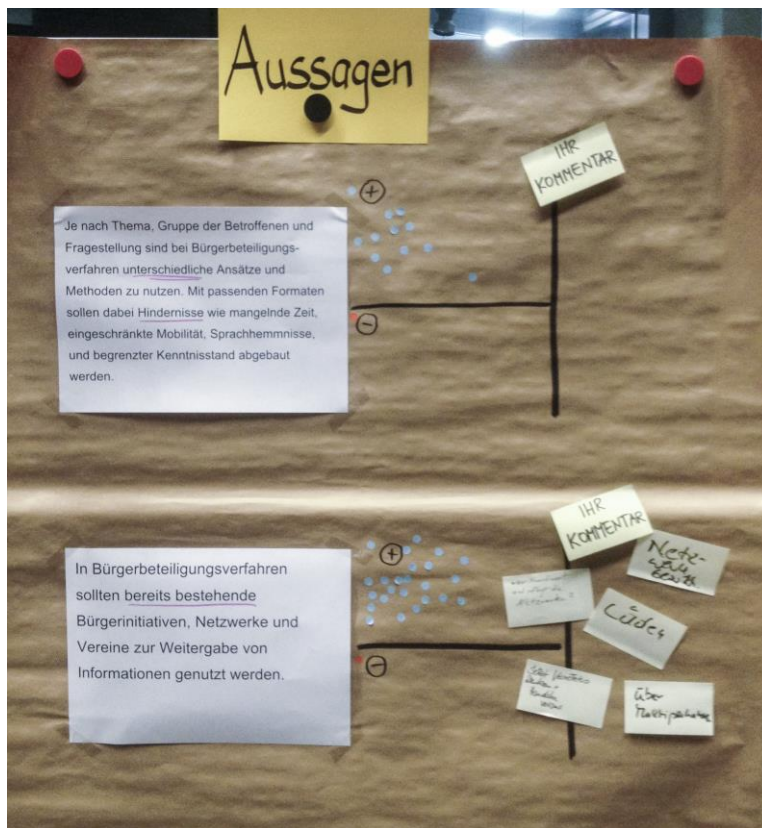 Aussagen
IHR
KOMMENTAR
+
Je nach Thema, Gruppe der Betroffenen und
Fragestellung sind bei Bürgerbeteiligungs-
verfahren unterschiedliche Ansätze und
Methoden zu nutzen. Mit passenden Formaten
sollen dabei Hindernisse wie mangelnde Zeit,
eingeschränkte Mobilität, Sprachhemmnisse,
und begrenzter Kenntnisstand abgebaut
werden.
-
IHR
KOMMENTAR
+
In Bürgerbeteiligungsverfahren
sollten bereits bestehende
Bürgerinitiativen, Netzwerke und
Vereine zur Weitergabe von
Informationen genutzt werden.
-
Netz-
Netzwerken?
über